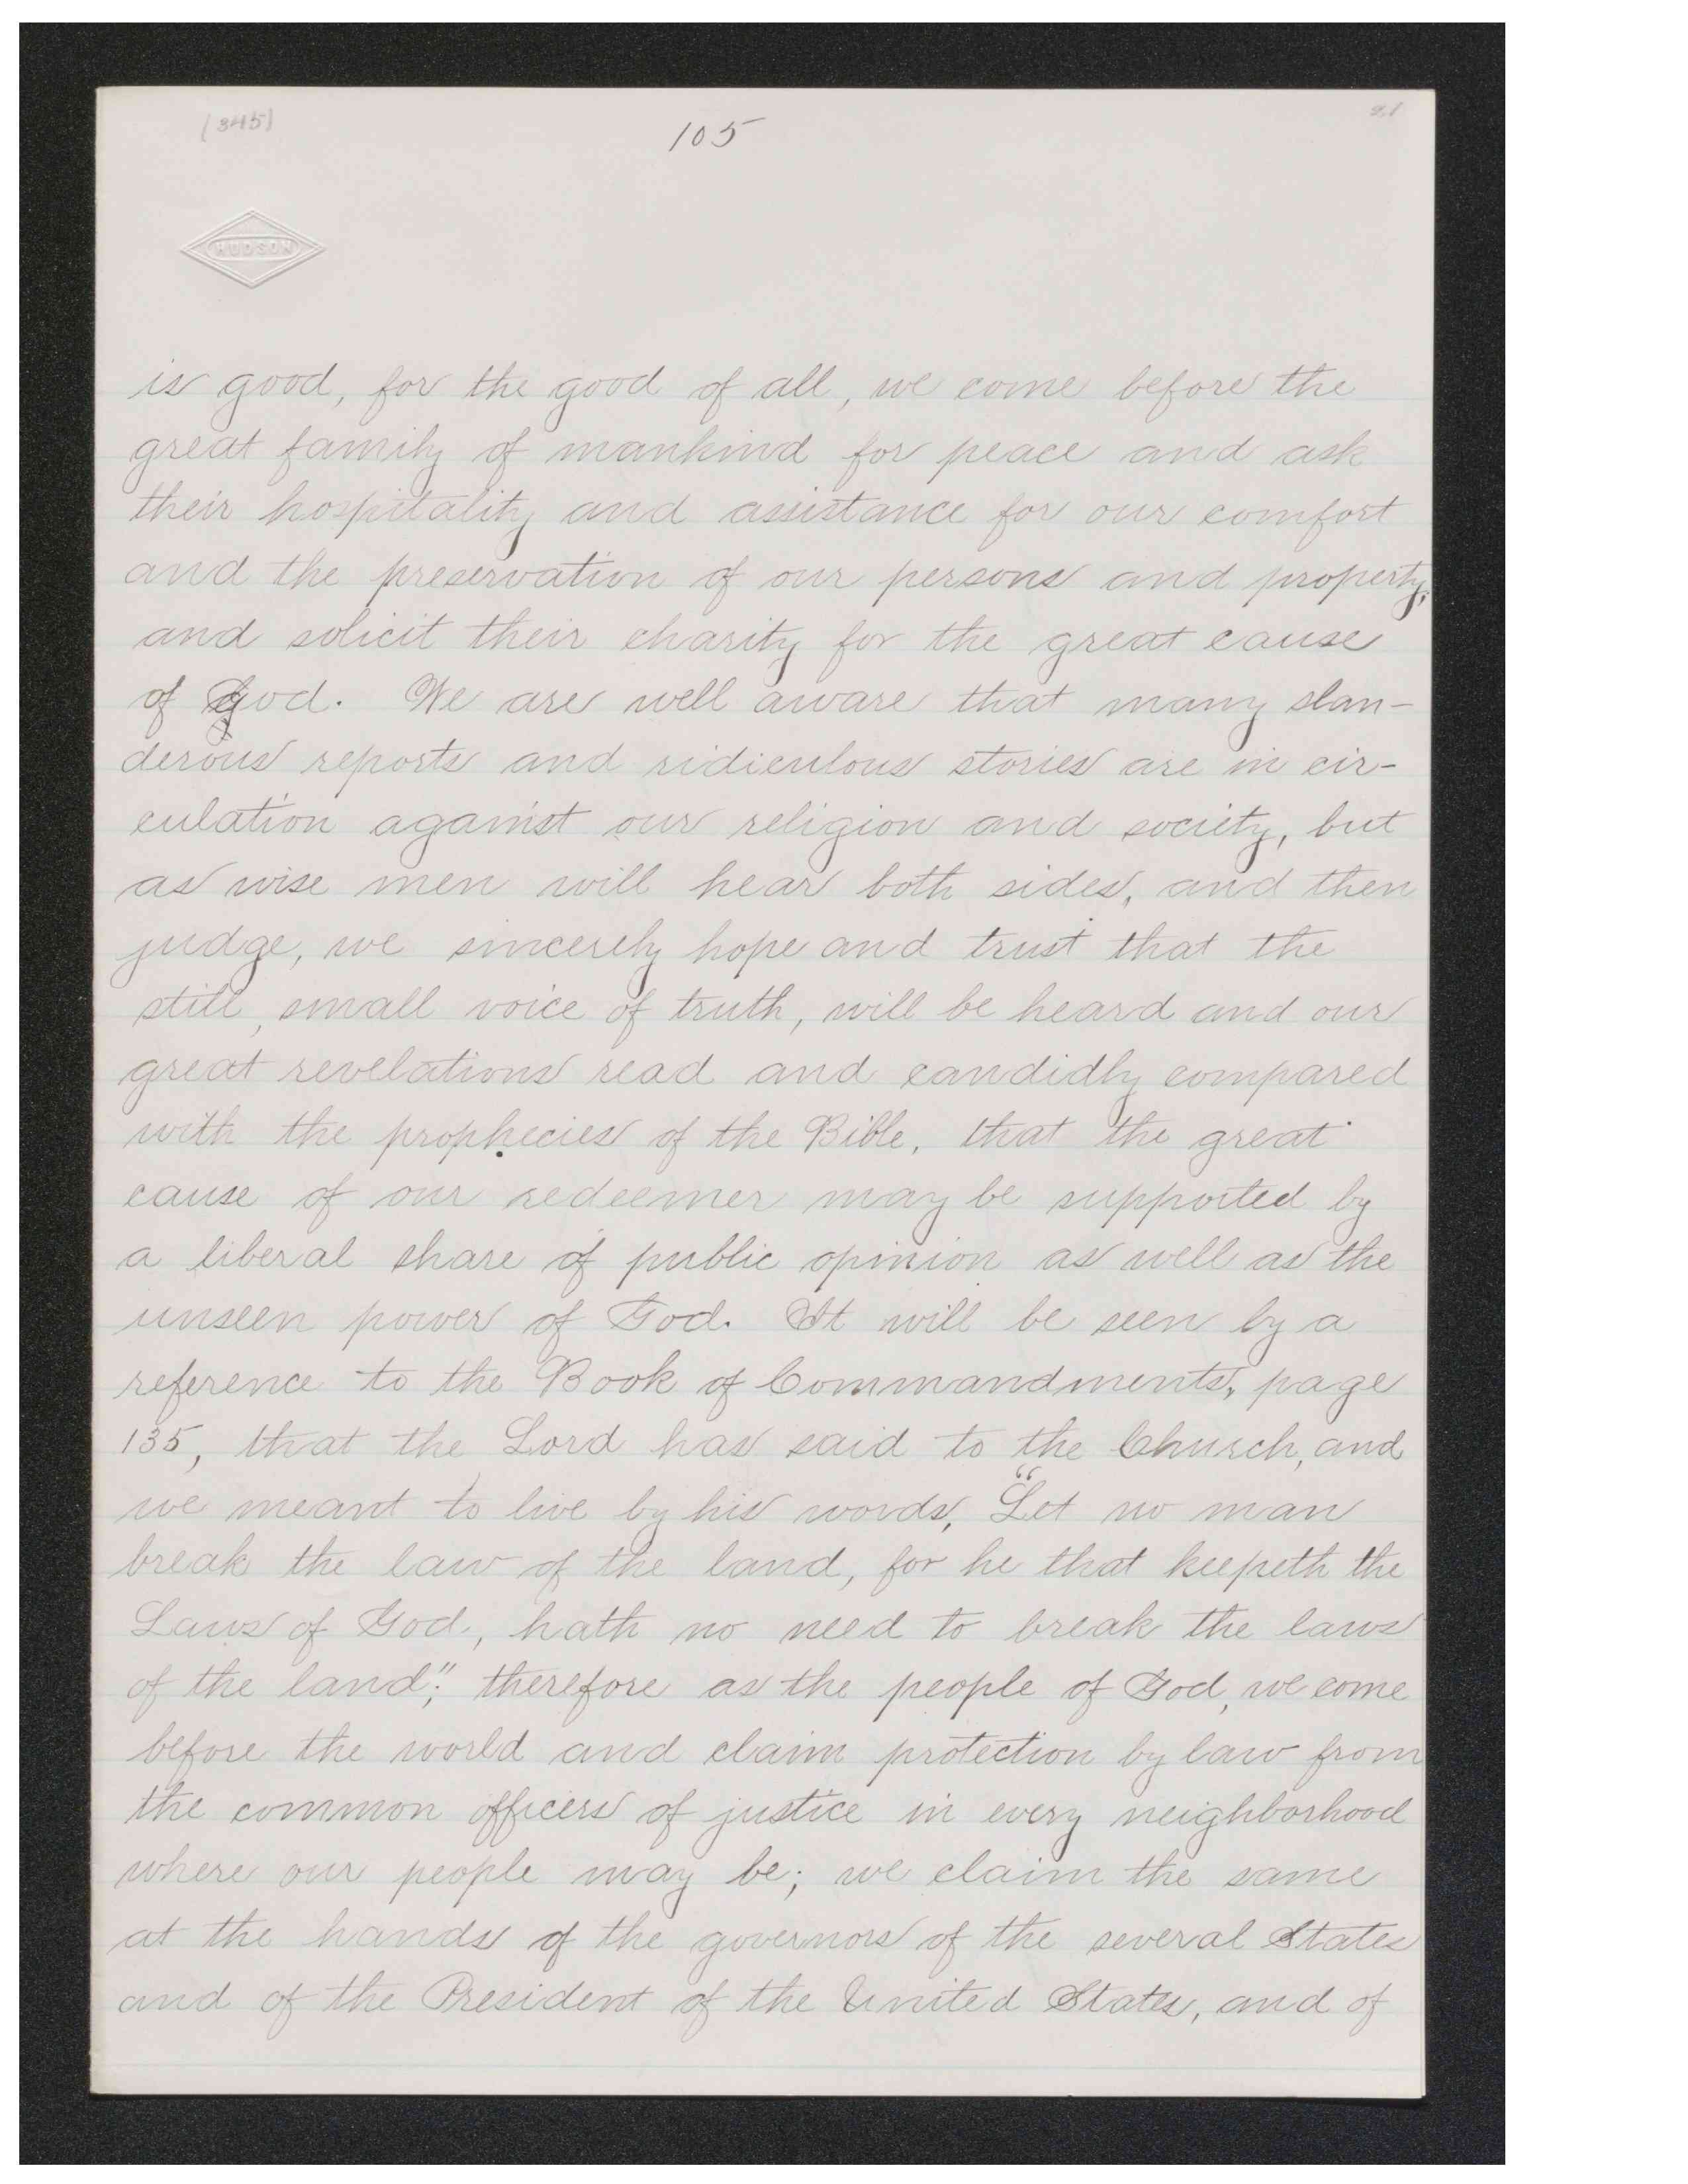 (345)
105
21
HUDSON
is good, for the good of all, we come before the
great family of mankind for peace and ask
their hospitality and assistance for our comfort
and the preservation of our persons and property,
and solicit their charity for the great cause
of God. We are well aware that many slan-
derous reports and ridiculous stories are in cir-
culation against our religion and society, but
as wise men will hear both sides, and then
judge, we sincerely hope and trust that the
still, small voice of truth, will be heard and our
great revelations read and candidly compared
with the prophecies of the Bible, that the great
cause of our redeemer may be supported by
a liberal share of public opinion as well as the
unseen power of God. It will be seen by a
reference to the Book of Commandments, page
135, that the Lord has said to the Church, and
we meant to live by his words, "Let no man
break the law of the land, for he that keepeth the
Laws of God, hath no need to break the laws
of the land"; therefore as the people of God, we come
before the world and claim protection by law from
the common officers of justice in every neighborhood
where our people may be; we claim the same
at the hands of the governors of the several States
and of the President of the United States, and of